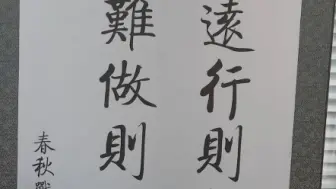 遠行則
難做則
春秋戰